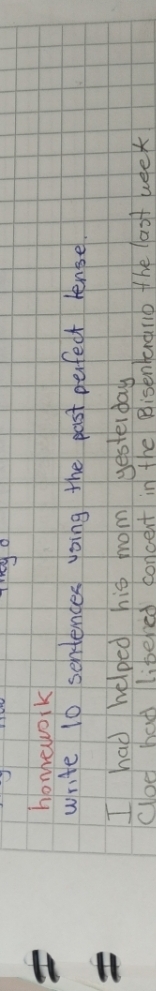 homework
write 10 sentences using the past perfect tense.
I had helped his mom yesterday
had libered concert in the Bisentenario the last week